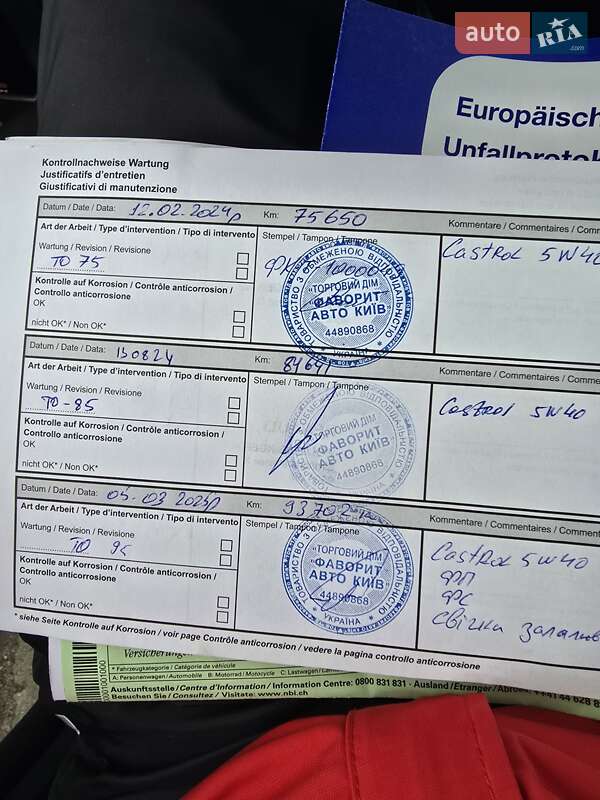 auto RIA.com
Europäisch
Unfallprotok
Kontrollnachweise Wartung
Justificatifs d'entretien
Giustificativi di manutenzione
Datum / Date / Data: 12.02.2024р Km: 75650 Kommentare / Commentaires / Comm
Art der Arbeit / Type d'intervention / Tipo di intervento
Stempel / Tampon / Tampone
Castrol 5W40
Wartung / Revision / Revisione
ТО 75
Kontrolle auf Korrosion / Contrôle anticorrosion /
Controllo anticorrosione
OK
nicht OK* / Non OK*
ТОВАРИСТВО З ОБМЕЖЕНОЮ ВІДПОВІДАЛЬНІСТЮ
"ТОРГОВИЙ ДІМ
"ФАВОРИТ
АВТО КИЇВ"
44890868
УКРАЇНА
Datum / Date / Data: 130824 Km: Kommentare / Commentaires / Com
Art der Arbeit / Type d'intervention / Tipo di intervento
Stempel / Tampon / Tampone
Castrol 5W40
Wartung / Revision / Revisione
ТО-85
Kontrolle auf Korrosion / Contrôle anticorrosion /
Controllo anticorrosione
OK
nicht OK* / Non OK*
ТОРГОВИЙ ДІМ
"ФАВОРИТ
АВТО КИЇВ"
44890868
Datum / Date / Data: 05.03 2025р Km: 93702 Kommentare / Commentaires / Com
Art der Arbeit / Type d'intervention / Tipo di intervento
Stempel / Tampon / Tampone
Castrol 5W40
ФП
ФС
Свічки запалюв
Wartung / Revision / Revisione
ТО 95
Kontrolle auf Korrosion / Contrôle anticorrosion /
Controllo anticorrosione
OK
nicht OK* / Non OK*
"ТОРГОВИЙ ДІМ
"ФАВОРИТ
АВТО КИЇВ"
44890868
УКРАЇНА
* siehe Seite Kontrolle auf Korrosion / voir page Contrôle anticorrosion / vedere la pagina controllo anticorrosione
Versicherung
* Fahrzeugkategorie / Catégorie de véhicule
A: Personenwagen / Automobile B: Motorrad / Motocycle C: Lastwagen /
Auskunftsstelle / Centre d'Information / Information Centre: 0800 831 831 - Ausland / Etranger / Abroad +41 44 628 8
Besuchen Sie / Consultez / Visitate: www.nbi.ch